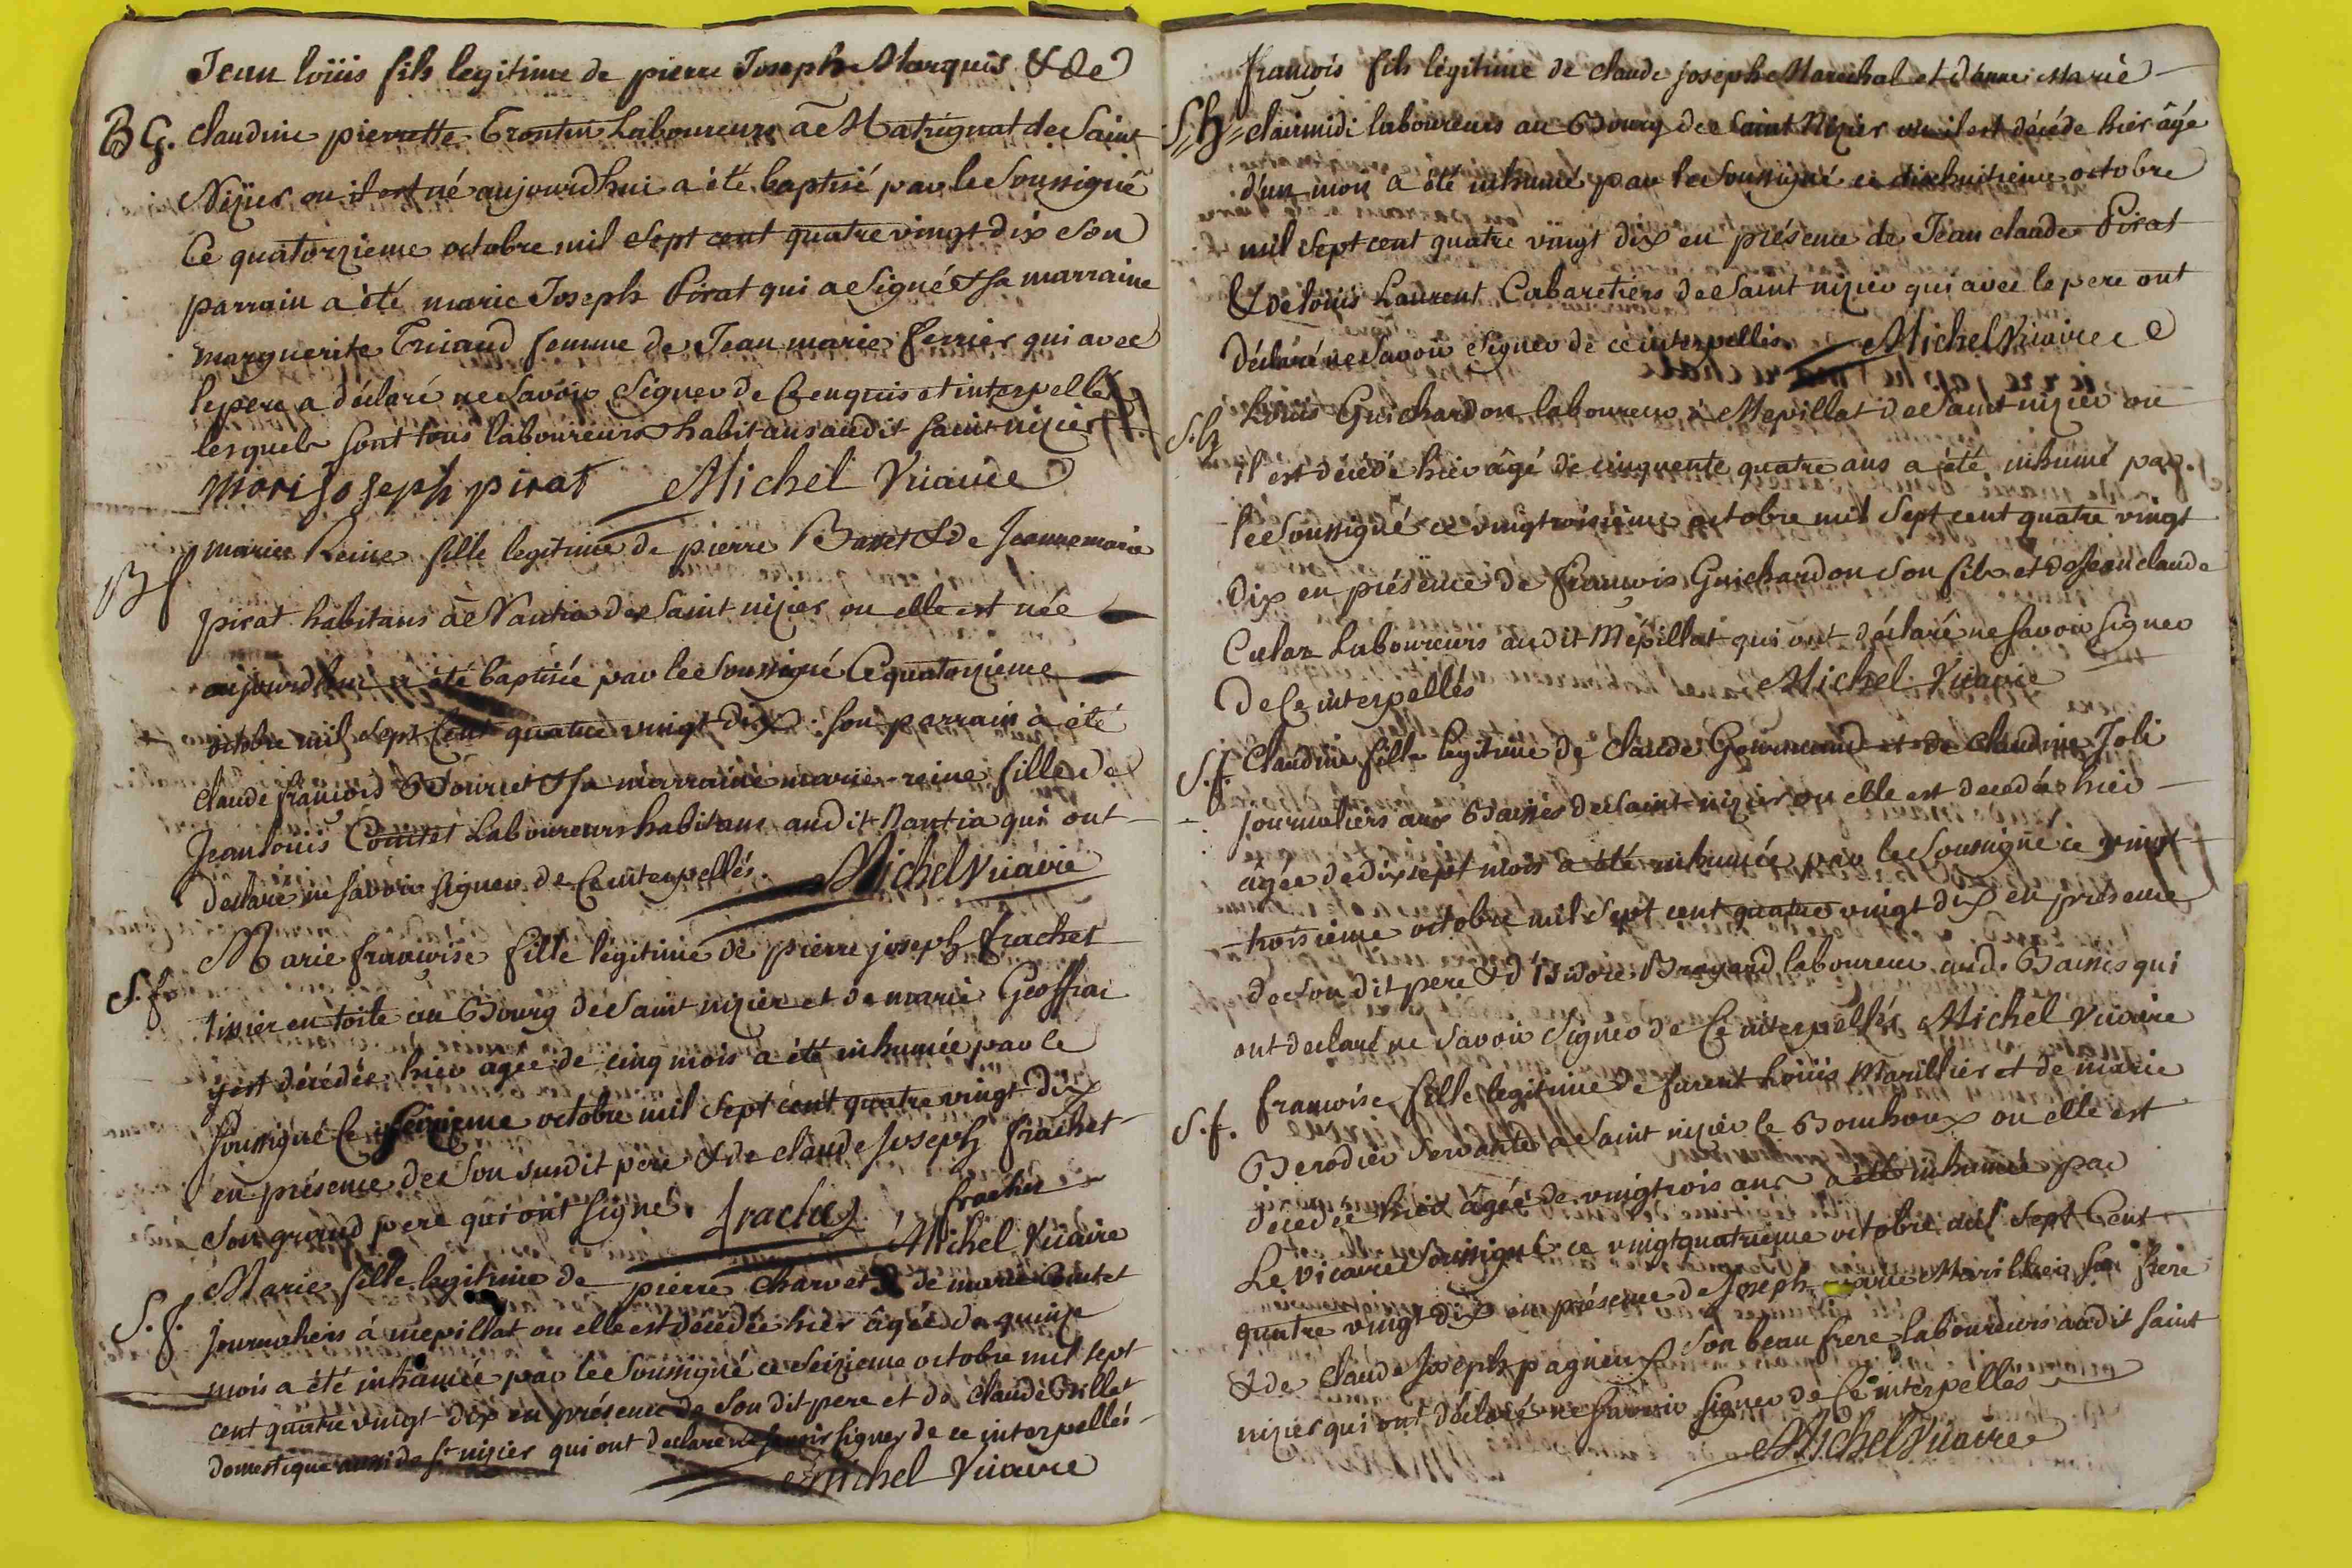 Jean loüis fils legitime de pierre Joseph Marquis & de
B G. claudine pierrette Trontin Laboureurs à Matrignat de Saint
Nizier ou il est né aujourdhui a été baptisé par le Soussigné
Ce quatorzieme octobre mil Sept cent quatre vingt dix Son
parrain a été marie Joseph Pirat qui a Signé & Sa marraine
marguerite Tricaud femme de Jean marie ferrier qui avec
le pere a déclaré ne Savoir Signer de Ce enquis et interpellé
lesquels sont tous laboureurs habitans audit Saint nizier
mari Joseph pirat Michel Vicaire
B f marie Reine fille legitime de pierre Basset & de Jeanne marie
pirat habitans à Nantia de Saint nizier ou elle est née
aujourdhui a été baptisée par le Soussigné Ce quatorzieme
octobre mil Sept Cent quatre vingt Dix. Son parrain a été
Claude françois & Sa marraine marie reine fille de
Jean louis Comtet Laboureurs habitans audit Nantia qui ont
Declaré ne Savoir Signer de Ce interpellés. Michel Vicaire
S. f. Marie francoise fille légitime de pierre joseph frachet
tissier en toile au Bourg de Saint nizier et de marie Geoffrai
y est décédée hier agée de cinq mois a été inhumée par le
Soussigné Ce Seizieme octobre mil Sept cent quatre vingt Dix
en présence de Son susdit pere & de claude Joseph frachet
Son grand pere qui ont Signé. frachet frachet
Michel Vicaire
S. f. Marie fille legitime de pierre Charvet & de marie Comtet
journaliers á mepillat ou elle est decédée hier âgée de quinze
mois a été inhumée par le Soussigné ce Seizieme octobre mil sept
cent quatre vingt dix en présence de Son dit pere et de Claude Grillet
Domestique aussi de St nizier qui ont declaré ne Savoir signer de ce interpellés
Michel Vicaire
francois fils légitime de claude joseph Marechal et d'anne Marie
S h claimidi laboureurs au Bourg de Saint Nizier ou il est décéde hier âgé
d'un mois a été inhumé par le Soussigné ce dixhuitieme octobre
mil Sept cent quatre vingt dix en présence de Jean claude Pirat
& de loüis Laurent Cabaretiers de Saint nizier qui avec le pere ont
Déclaré ne Savoir Signer de ce interpellés Michel Vicaire
S. h Loüis Guichardon laboureur à Mepillat de Saint nizier ou
il est décédé hier âgé de cinquante quatre ans a été inhumé par
le Soussigné ce vingtroisieme octobre mil Sept cent quatre vingt
Dix en présence de francois Guichardon Son fils et de Jean claude
Culaz Laboureurs audit Mépillat qui ont déclaré ne Savoir Signer
De Ce interpellés Michel Vicaire
S. f. Claudine fille legitime de Claude Gourmand et de Claudine Joli
Journaliers aux Baisses de Saint nizier ou elle est decedée hier
âgée de dix sept mois a été inhumée par le Soussigné ce vingt
troisieme octobre mil Sept cent quatre vingt dix en présence
de Son dit pere & d'Isidore Brayard laboureur aud. Baisses qui
ont declaré ne Savoir Signer de Ce interpellés Michel Vicaire
S. f. francoise fille legitime de furent Loüis Marillier et de marie
Berodier Servante a Saint nizier le Bouchoux ou elle est
décédée hier âgée de vingtrois ans a été inhumée par
Le vicaire Soussigné ce vingtquatrieme octobre mil Sept Cent
quatre vingt Dix en présence de Joseph marie Marillier Son frere
& de Claude Joseph pagneux Son beau frere laboureurs audit Saint
nizier qui ont déclaré ne Savoir Signer de Ce interpellés
Michel Vicaire